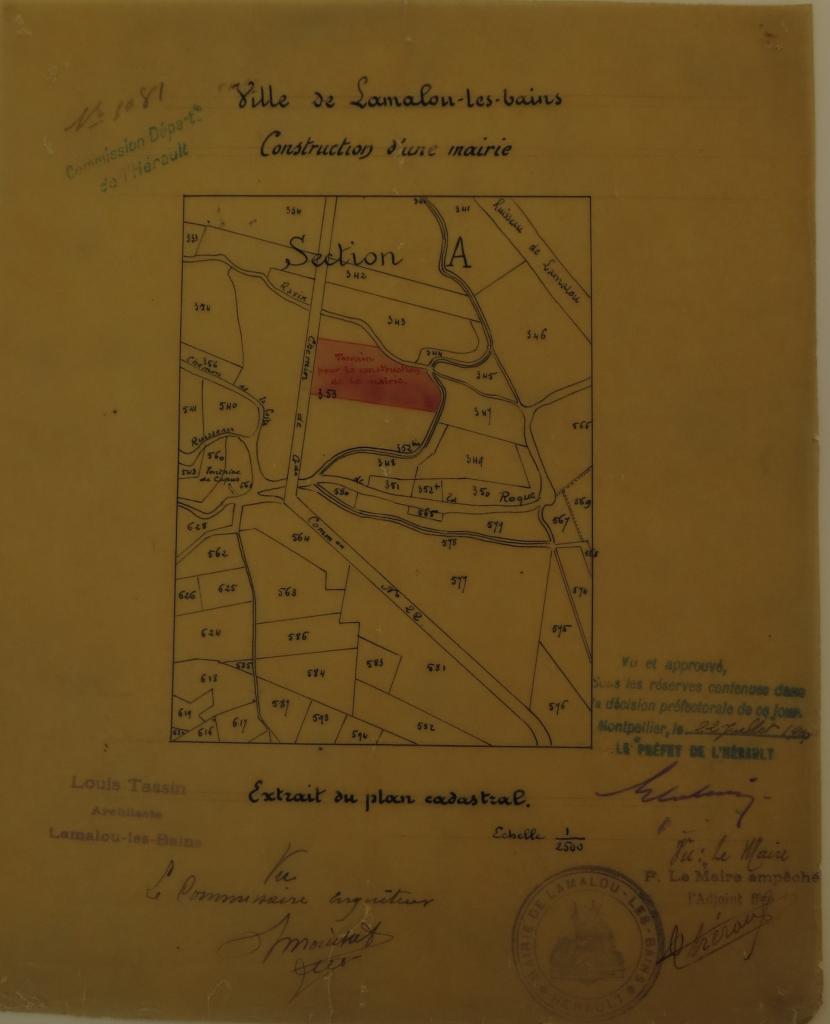 Nº 1081
Commission Dépar.tle
de l'Hérault
Ville de Lamalou-les-bains
Construction d'une mairie
Section A
334
341
Ruisseau de Lamalou
342
Ravin
343
346
344
345
Chemin de Gde
Terrain
pour la construction
de la mairie.
353
356
Chemin de la
347
541
540
566
Ruisseau
560
Fontaine
de Capus
561
348
349
351
350
de la Roque
565
569
567
628
564
579
578
562
Commun Nº 22
577
574
626
625
563
624
586
575
584
583
581
618
619
587
576
616
617
593
594
582
Vu et approuvé,
Sous les réserves contenues dans
la décision préfectorale de ce jour.
Montpellier, le 22 juillet
LE PRÉFET DE L'HÉRAULT
Louis Tassin
Architecte
Lamalou-les-Bains
Extrait du plan cadastral.
Echelle 1/2500
Vu
Le Commissaire enquêteur
Vu: Le Maire
P. Le Maire empêché
l'Adjoint ffon
MAIRIE DE LAMALOU-LES-BAINS
HÉRAULT